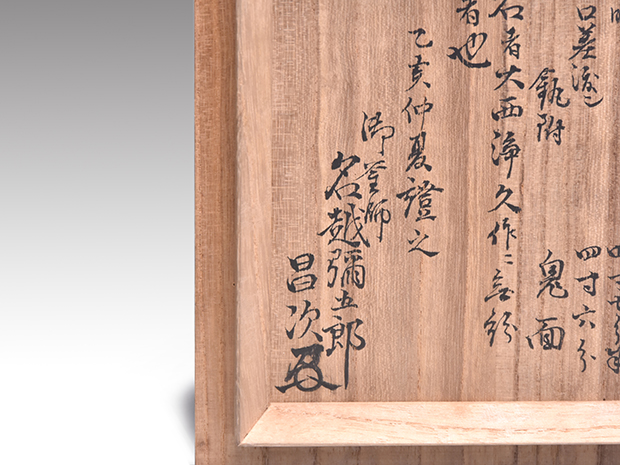 四寸六分
口差渡シ
鬼面
釻附
右者大西浄久作ニ無紛
者也
乙亥仲夏證之
御釜師
名越彌五郎
昌次